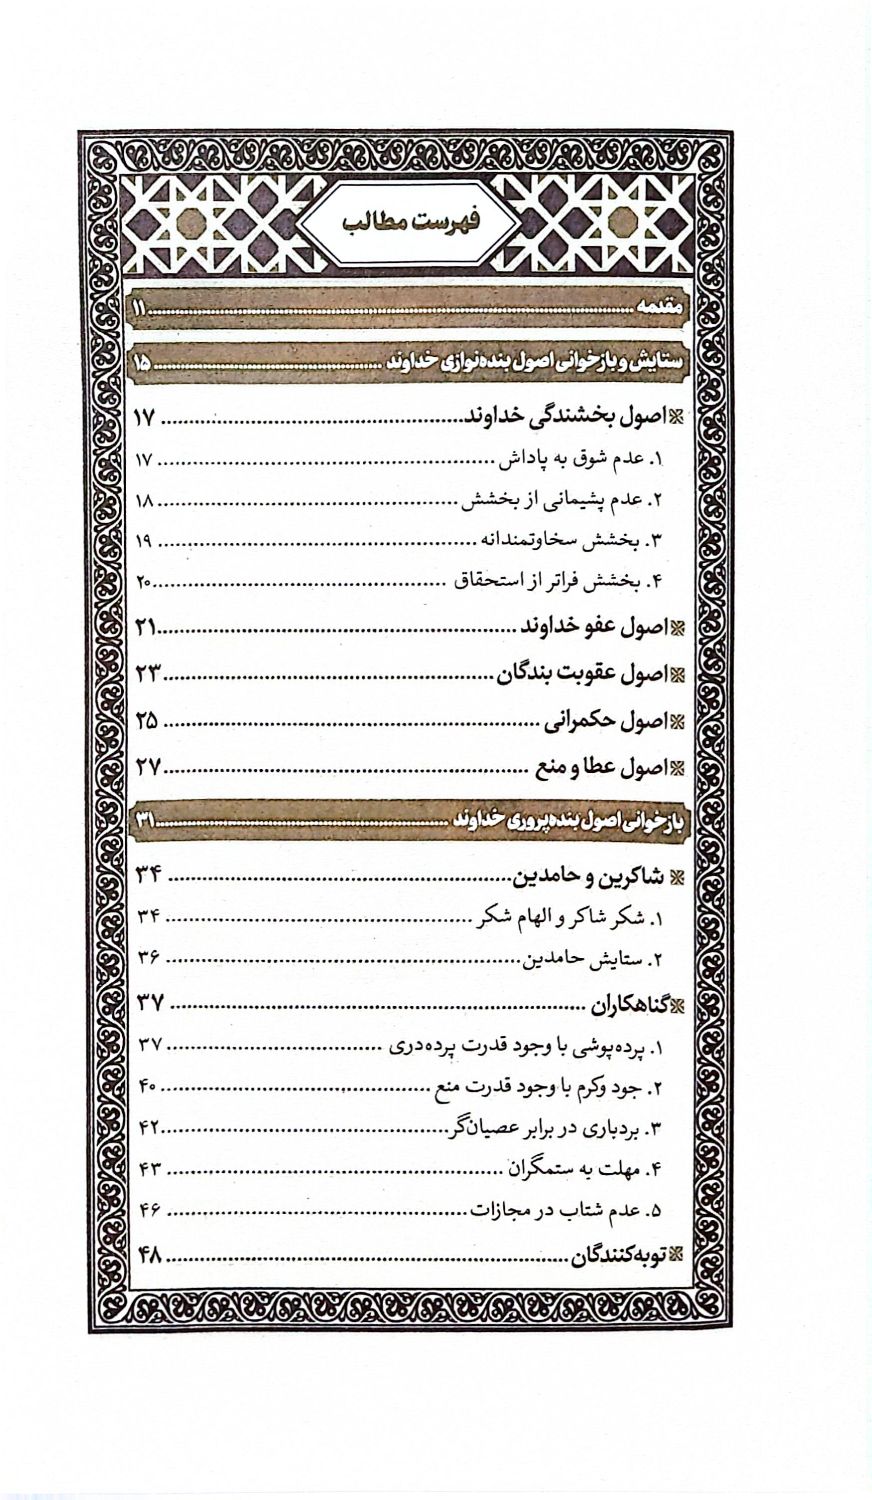 فهرست مطالب
مقدمه ........ ۱۱
ستایش و بازخوانی اصول بنده‌نوازی خداوند ........ ۱۵
اصول بخشندگی خداوند ........ ۱۷
۱. عدم شوق به پاداش ........ ۱۷
۲. عدم پشیمانی از بخشش ........ ۱۸
۳. بخشش سخاوتمندانه ........ ۱۹
۴. بخشش فراتر از استحقاق ........ ۲۰
اصول عفو خداوند ........ ۲۱
اصول عقوبت بندگان ........ ۲۳
اصول حکمرانی ........ ۲۵
اصول عطا و منع ........ ۲۷
بازخوانی اصول بنده‌پروری خداوند ........ ۳۱
شاکرین و حامدین ........ ۳۴
۱. شکر شاکر و الهام شکر ........ ۳۴
۲. ستایش حامدین ........ ۳۶
گناهکاران ........ ۳۷
۱. پرده‌پوشی با وجود قدرت پرده‌دری ........ ۳۷
۲. جود وکرم با وجود قدرت منع ........ ۴۰
۳. بردباری در برابر عصیان‌گر ........ ۴۲
۴. مهلت به ستمگران ........ ۴۳
۵. عدم شتاب در مجازات ........ ۴۶
توبه‌کنندگان ........ ۴۸